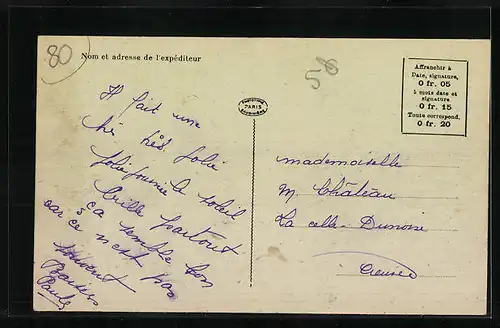 80
Nom et adresse de l'expéditeur
58
Affranchir à
Date, signature,
0 fr. 05
5 mots date et
signature
0 fr. 15
Toute correspond.
0 fr. 20
PARIS
Il fait une
très très jolie
jolie journée le soleil
brille partout
ça semble bon
car ce n'est pas
souvent
Baisers
Paule
mademoiselle
M. Château
La celle-Dunoise
Creuse